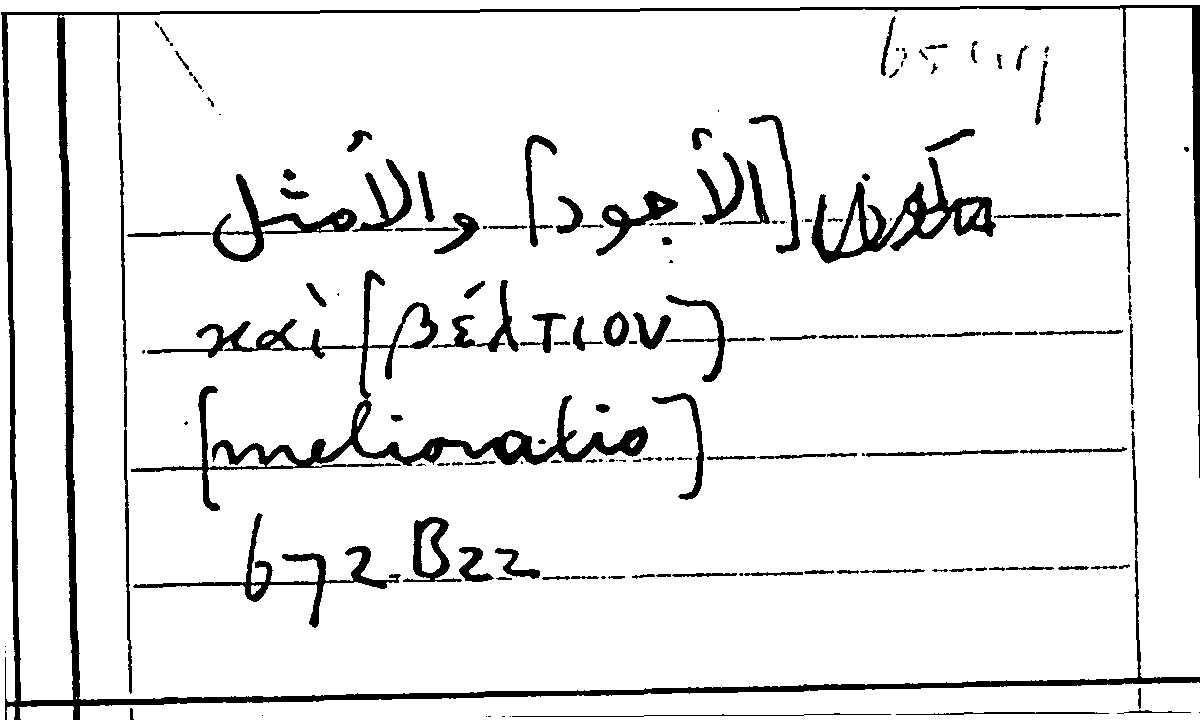 [الأجود] والأمثل
καὶ [βέλτιον]
[melioratio]
672.B22